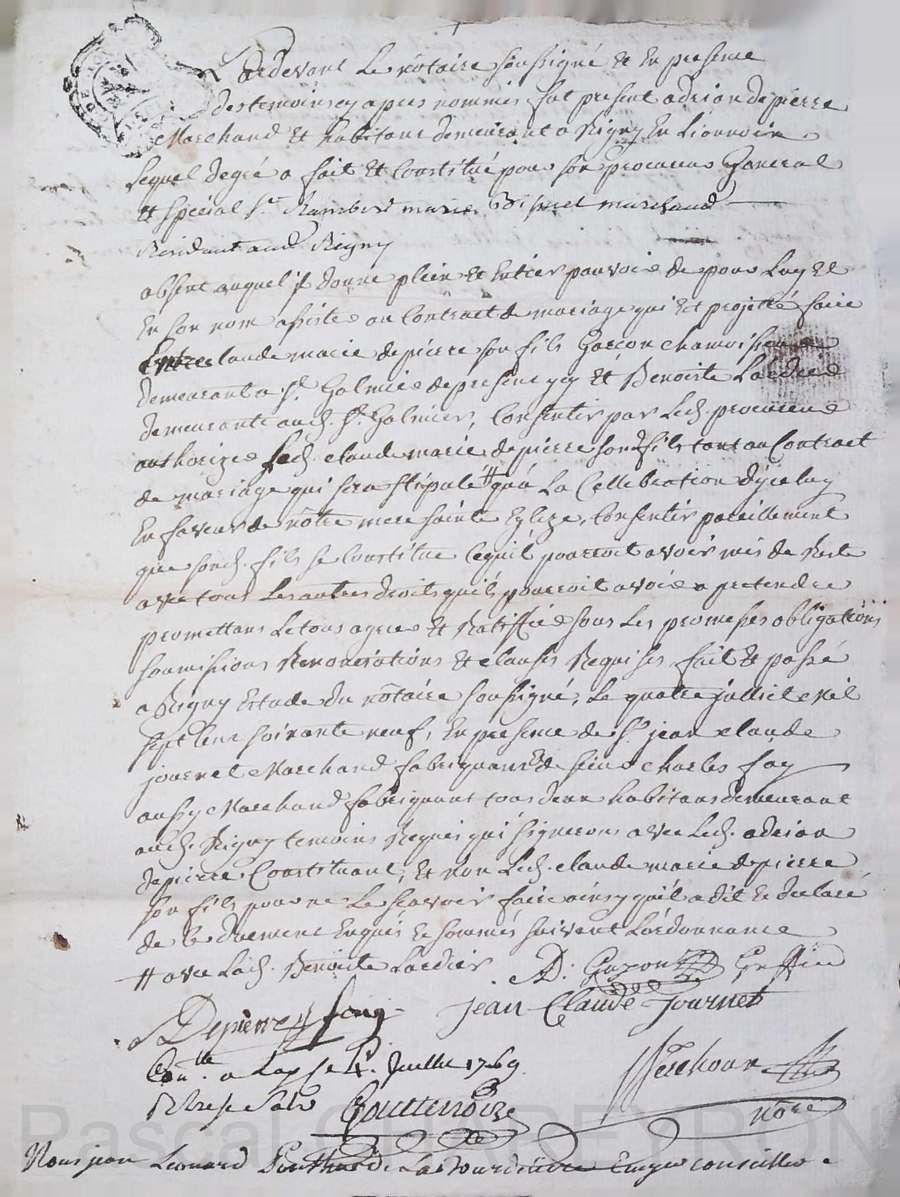 Pardevant Le notaire soussigné & En presence
des temoins cy apres nommés fut present adrian depierre
Marchand Et habitant demeurant a Regny En Lionnois
Lequel degré a fait Et Constitué pour son procureur General
Et special Sr. Rambert marie marchand
Residant aud. Regny
absent auquel il donne plein Et Entier pouvoir de pour Luy Et
En son nom assister au Contract de mariage qui Est projetté faire
Entre claude marie depierre son fils Garcon chamoisieur
demeurant a St. Galmier de present icy Et Benoite Lardier
demeurante aud. St. Galmier, Consentir par Led. procureur
authorizer Led. claude marie depierre sond. fils tant au Contract
de mariage qui sera stipulé # qu'a La Cellebration d'yceluy
En faveur de nôtre mere sainte Eglize, Consentir pareillement
que sond. fils se Constitue Cequil pourroit avoir mis de Reste
avec tous Les autres droits quil pourroit avoir a pretendre
promettant Le tout agreer Et Ratiffier sous Les promesses obligations
soumissions Renonciations Et clauses Requises, fait Et passé
a Regny Etude du nôtaire soussigné, Le quatre juillet Mil
sept Cent soixante neuf, En presence de Sr. jean claude
journet Marchand fabriquant & de sieur charles fay
aussy Marchand fabriquant tous deux habitans demeurant
aud. Regny temoins Requis qui signeront avec Led. adrian
depierre Constituant, Et non Led. claude marie depierre
son fils pour ne Le scavoir faire ainsy quil a dit Et declaré
de Ce duement Enquis Et sommé suivant L'ordonnance
# avec Lad. Benoite Lardier
Depierre fay jean Claude Journet
Conlle. a Lay Le 4e. Juillet 1769
Gouttenoire
nore
Nous jean Leonard de La Bourdiere Ecuyer conseiller
Pascal CHAREYRON